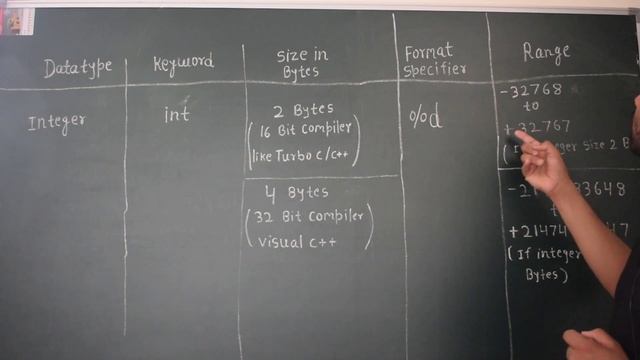 Datatype Keyword Size in Bytes Format Specifier Range
Integer int 2 Bytes
(16 Bit Compiler
like Turbo C/C++)
%d
-32768
to
+32767
( Size 2
4 Bytes
(32 Bit Compiler
Visual C++ )
-21 3648
+21474 47
(If integer
Bytes)